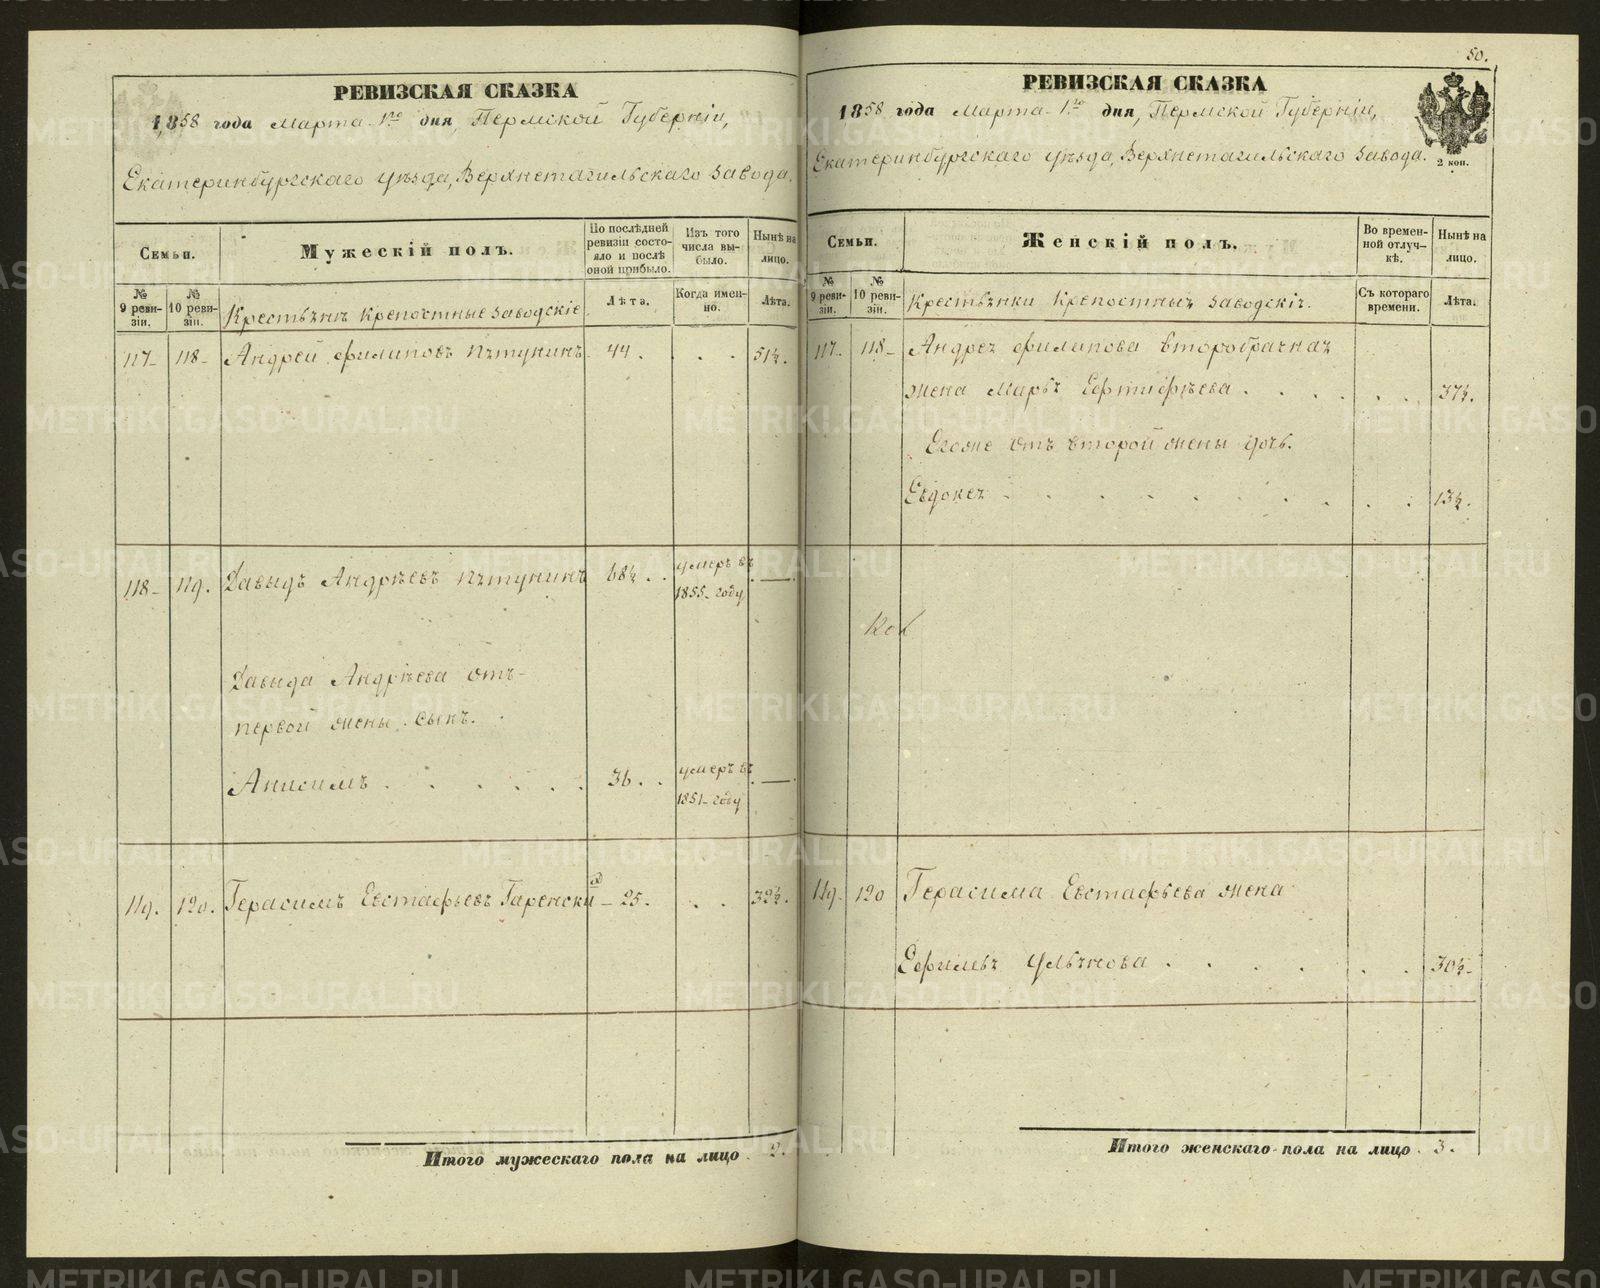 50.
РЕВИЗСКАЯ СКАЗКА
1858 года Марта 1го дня, Пермской Губерніи,
Екатеринбургскаго уѣзда, Верхнетагильскаго завода.
Семьи.
Мужескій полъ.
По послѣдней ревизіи состояло и послѣ оной прибыло.
Изъ того числа выбыло.
Нынѣ на лицо.
№ 9 ревизіи.
№ 10 ревизіи.
Крестьянъ крепостные заводскіе
Лѣта.
Когда именно.
Лѣта.
117 118 Андрей Филиповъ Пятунинъ 44. 51½.
118 119. Давыдъ Андрѣевъ Пятунинъ 68½. умеръ въ 1855 году
Давыда Андрѣева отъ
первой жены сынъ.
Анисимъ 36. умеръ въ 1851 году
119. 120. Герасимъ Евстафьевъ 25. 32½.
Итого мужескаго пола на лицо 2.
РЕВИЗСКАЯ СКАЗКА
1858 года Марта 1го дня, Пермской Губерніи,
Екатеринбургскаго уѣзда, Верхнетагильскаго завода.
2 коп.
Семьи.
Женскій полъ.
Во временной отлучкѣ.
Нынѣ на лицо.
№ 9 ревизіи.
№ 10 ревизіи.
Крестьянки крепостныя заводскія.
Съ котораго времени.
Лѣта.
117 118 Андрея Филипова второбрачная
жена Марья Ефтифѣева 37½.
Егоже отъ второй жены дочь.
Евдокея 13½.
119. 120 Герасима Евстафьева жена
Ефимья Ульянова 30½
Итого женскаго пола на лицо 3.
METRIKI.GASO-URAL.RU